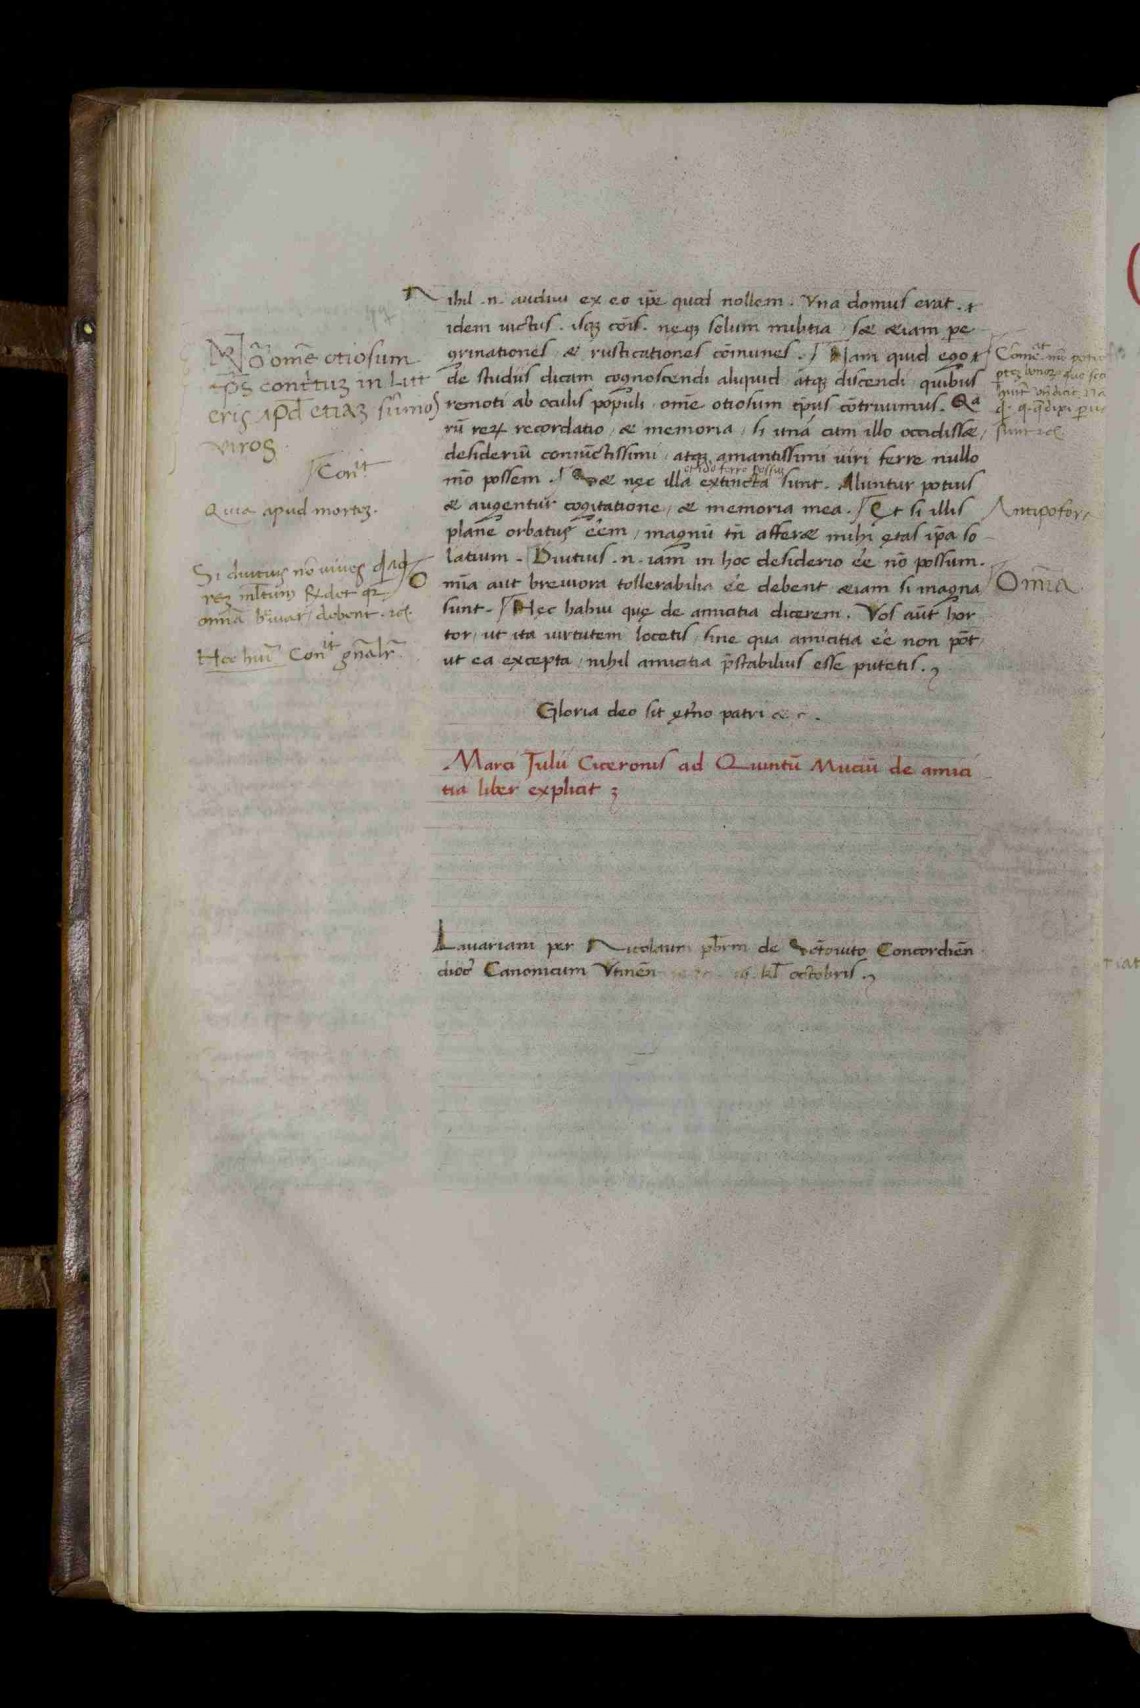 Nihil .n. audiui ex eo ip̄e quod nollem. Vna domus erat. &
idem uictus. isq; cōis. neq; solum militia / sæ æiam pe
grinationes / æ rusticationes cōmunes. Nam quid ego
de studiis dicam cognoscendi aliquid atq; discendi / quibus
remoti ab oculis populi / omē otiosum tp̄us cōtriuimus. Qa
rū rerꝝ recordatio / æ memoria / si uná cum illo occidissæ /
desideriū coniūctissimi / atq; amantissimi uiri ferre nullo
mō possem. Sæ nęc illa extincta sunt. Aluntur potius
æ augentur cogitatione / æ memoria mea. Et si illis
planē orbatus éēm / magnū tn̄ afferæ mihi ętas ip̄a so
latium. Diutius .n. iam in hoc desiderio éē nō possum.
Omīa aut breuiora tollerabilia éē debent æiam si magna
sunt. Hęc habui quę de amicitia dicerem. Vos aūt hor
tor / ut ita uirtutem locetis / sine qua amicitia éē non pōt
ut ea excepta / nihil amicitia p̄stabilius esse putetis.
Gloria deo sit ęt̄no patri æ c.
Marci Tulii Ciceronis ad Quintū Muciū de amici
tia liber explicit
Lauariani per Nicolaum pb̄rm de
Concordiēn
dioc̄ Canonicum Vtinēn kl̄ octobris.
Nō omē otiosum
tp̄s conť̄tuꝫ in litt
eris ap̄d etiaꝫ sūmos
viros
Conit
Quia apud mortez.
Si diutius nō viues
omīa debent
Antipofora
Omīa